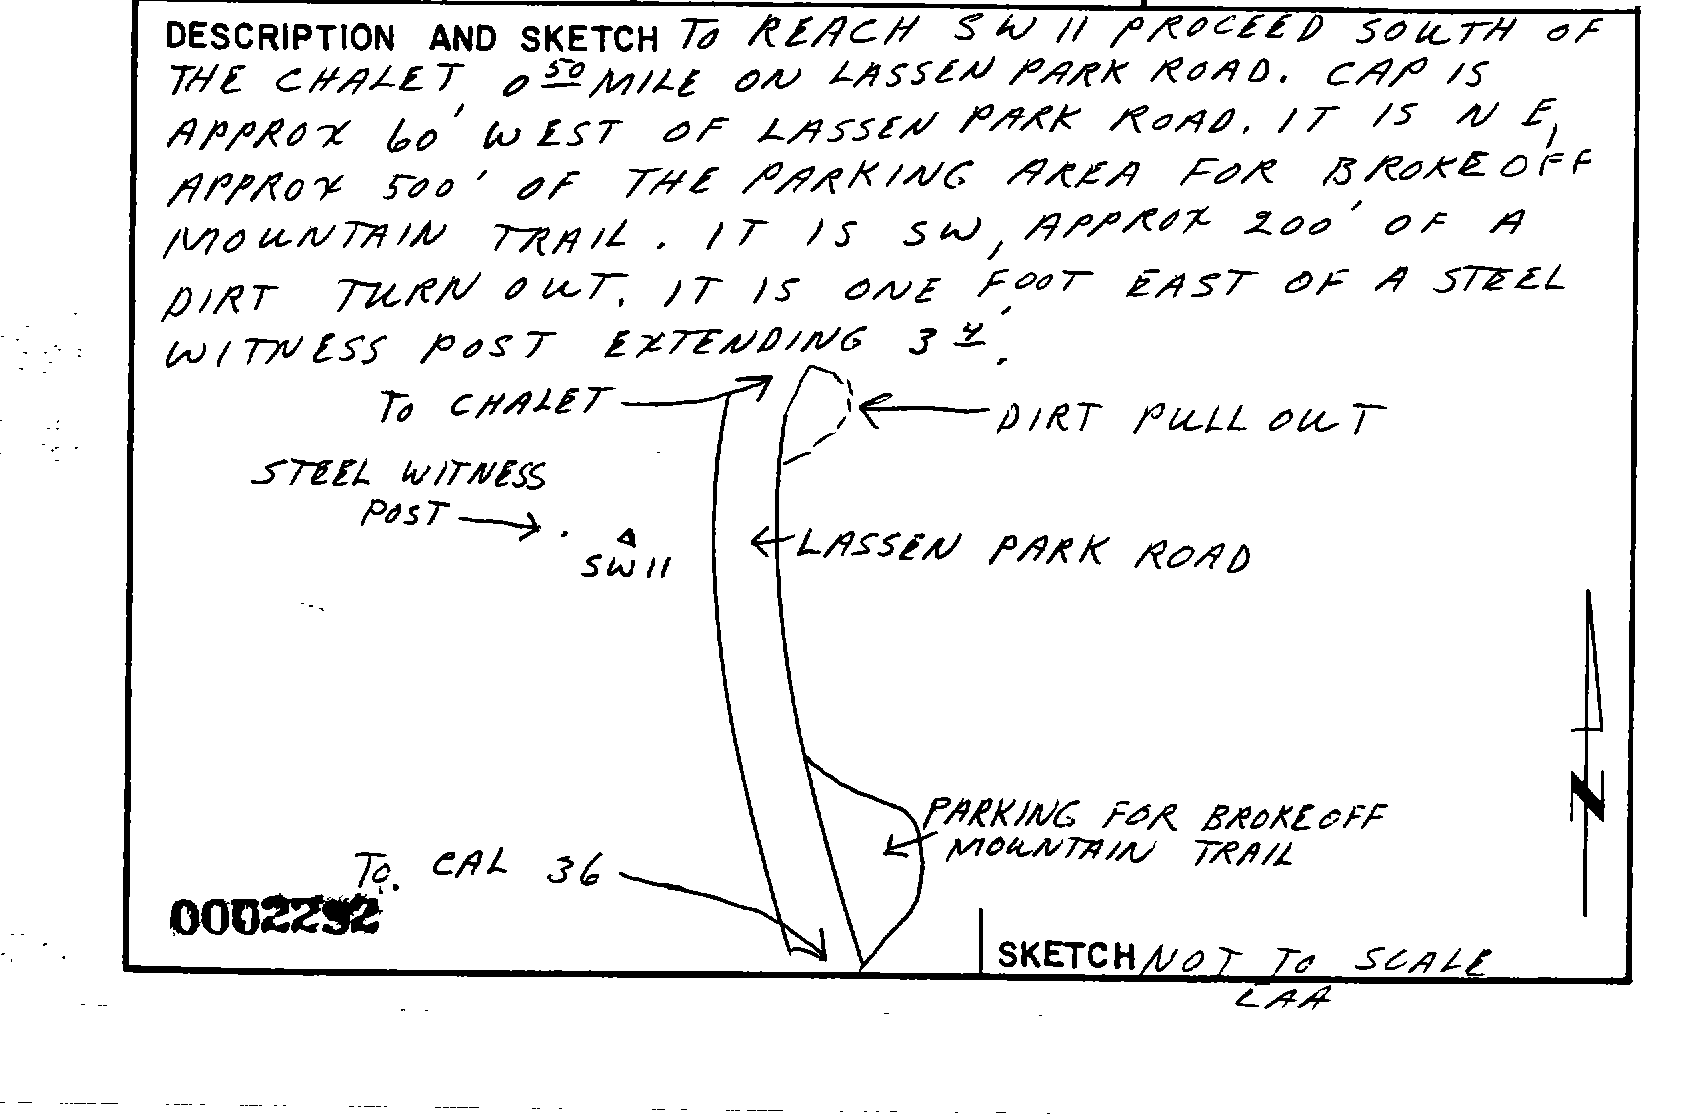 DESCRIPTION AND SKETCH TO REACH SW 11 PROCEED SOUTH OF
THE CHALET, 0 50 MILE ON LASSEN PARK ROAD. CAP IS
APPROX 60' WEST OF LASSEN PARK ROAD. IT IS NE,
APPROX 500' OF THE PARKING AREA FOR BROKEOFF
MOUNTAIN TRAIL. IT IS SW, APPROX 200' OF A
DIRT TURN OUT. IT IS ONE FOOT EAST OF A STEEL
WITNESS POST EXTENDING 3 4'.
TO CHALET
DIRT PULL OUT
STEEL WITNESS
POST
SW 11
LASSEN PARK ROAD
N
PARKING FOR BROKEOFF
MOUNTAIN TRAIL
TO CAL 36
0002292
SKETCH NOT TO SCALE
LAA